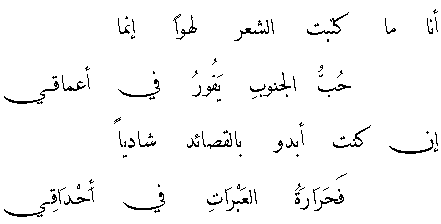 أنا ما كتبت الشعر لهواً إنما
حُبُّ الجنوبِ يَفُورُ في أعماقي
إن كنت أبدو بالقصائد شادياً
فَحَرَارَةُ العَبْرَاتِ في أحْدَاقِي